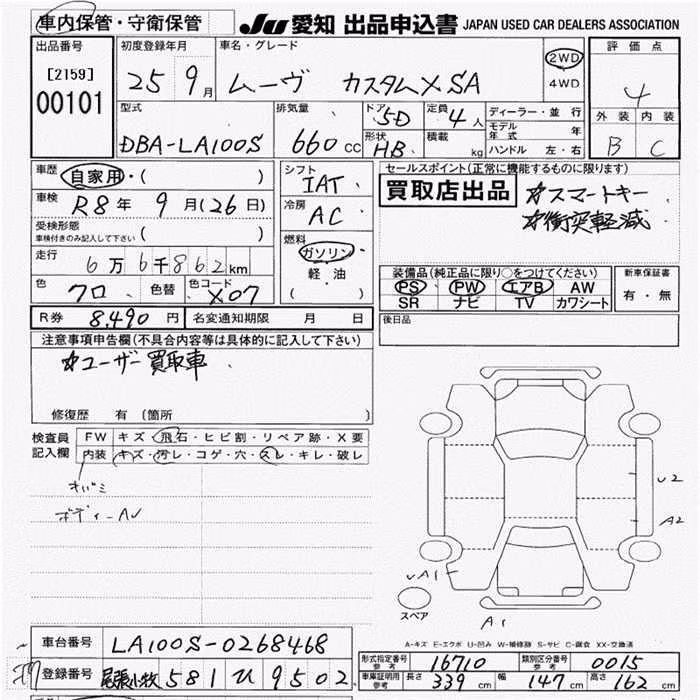 車内保管・守衛保管
JU 愛知 出品申込書 JAPAN USED CAR DEALERS ASSOCIATION
出品番号 [2159] 00101
初度登録年月 25 9月
車名・グレード ムーヴ カスタムX SA
2WD
4WD
評価点 4
外装 内装
B C
型式 DBA-LA100S
排気量 660 cc
ドア 5D
形状 HB
定員 4人
積載 kg
ディーラー・並行
モデル年式 年
ハンドル 左・右
車歴 自家用・( )
車検 R8年 9月(26日)
受検形態
車検付きのみ記入して下さい ( )
走行 6万6千862km
色 クロ 色替 色コード X07
シフト IAT
冷房 AC
燃料
ガソリン
軽・油
( )
セールスポイント(正常に機能するものに限ります)
買取店出品 ☆スマートキー
☆衝突軽減
装備品(純正品に限り○をつけてください)
PS PW エアB AW
SR ナビ TV カワシート
新車保証書
有・無
R券 8,490円 名変通知期限 月 日
後日品
注意事項申告欄(不具合内容等は具体的に記入して下さい)
☆ユーザー買取車
修復歴 有 (箇所 )
検査員記入欄
FW キズ・飛石・ヒビ割・リペア跡・X要
内装 キズ・汚レ・コゲ・穴・スレ・キレ・破レ
ボディーAU
U2
A2
UA1
A1
スペア
A-キズ E-エクボ U-凹み W-補修跡 S-サビ C-腐食 XX-交換済
車台番号 LA100S-0268468
登録番号 尾張小牧 581 ひ 9502
形式指定番号 参考 16710 類別区分番号 参考 0015
車庫証明用 参考 長さ 339cm 幅 147cm 高さ 162cm